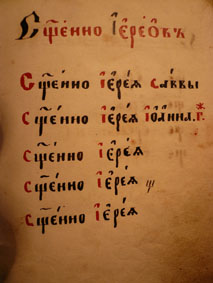 Сщ҃е́нно І҆ере́ѡвъ
Сщ҃е́нно І҆ере́ѧ са́ввы
Сщ҃е́нно І҆ере́ѧ І҆ѡа́нна. г҃.
сщ҃е́нно І҆ере́ѧ
сщ҃е́нно І҆ере́ѧ
сщ҃е́нно І҆ере́ѧ